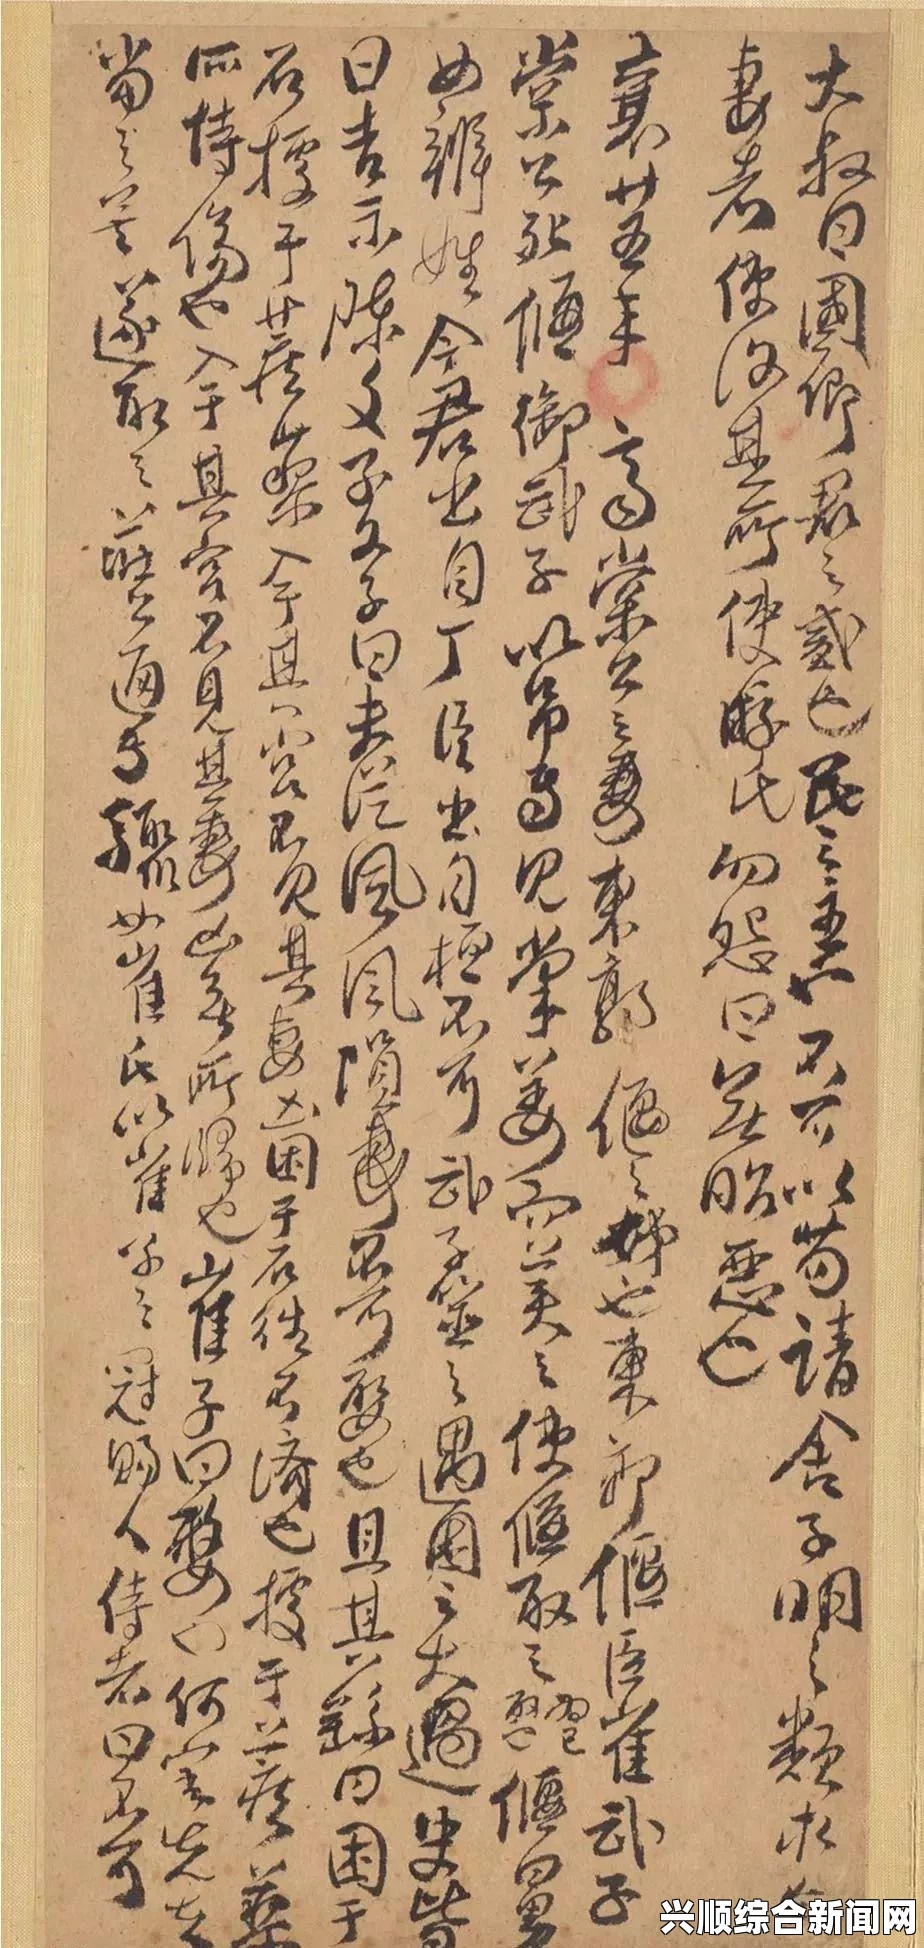 大叔曰國卿君之貳也民之主也不可以苟請舍子明之類求亡
妻者使復其所使游氏勿怨曰無昭惡也
襄廿五年 齊棠公之妻東郭偃之姊也東郭偃臣崔武子
棠公死偃御武子以弔焉見棠姜而美之使偃取之偃曰男
女辨姓今君出自丁臣出自桓不可武子筮之遇困之大過史皆
曰吉示陳文子文子曰夫從風風隕妻不可娶也且其繇曰困于
石據于蒺藜入于其宮不見其妻凶困于石往不濟也據于蒺藜
所恃傷也入于其宮不見其妻凶無所歸也崔子曰嫠也何害先夫
當之矣遂取之莊公通焉驟如崔氏以崔子之冠賜人侍者曰不可
兴顺综合新闻网